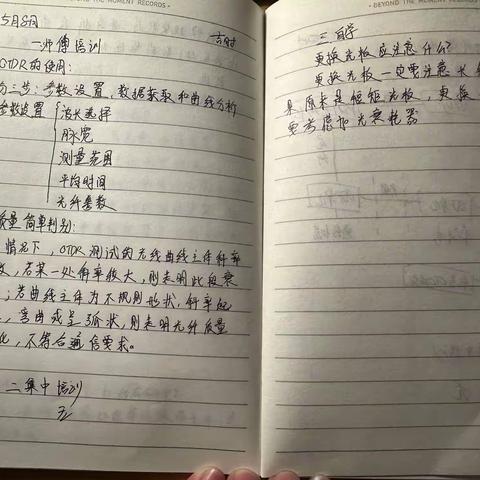 THE MOMENT RECORDS •
5月8日
一.师傅培训
OTDR的使用:
分三步:参数设置、数据获取和曲线分析
参数设置 波长选择
脉宽
测量范围
平均时间
光纤参数
质量简单判别:
情况下,OTDR测试的光线曲线主体斜率
,若某一处斜率较大,则表明此段衰
;若曲线主体为不规则形状,斜率起
,弯曲或呈弧状,则表明光纤质量
化,不符合通信要求。
二集中培训
无
• BEYOND THE MOMENT RECORDS
三 自学
更换光板应注意什么?
更换光板一定要注意长
原来是短距光板,更换
要考虑加光衰耗器